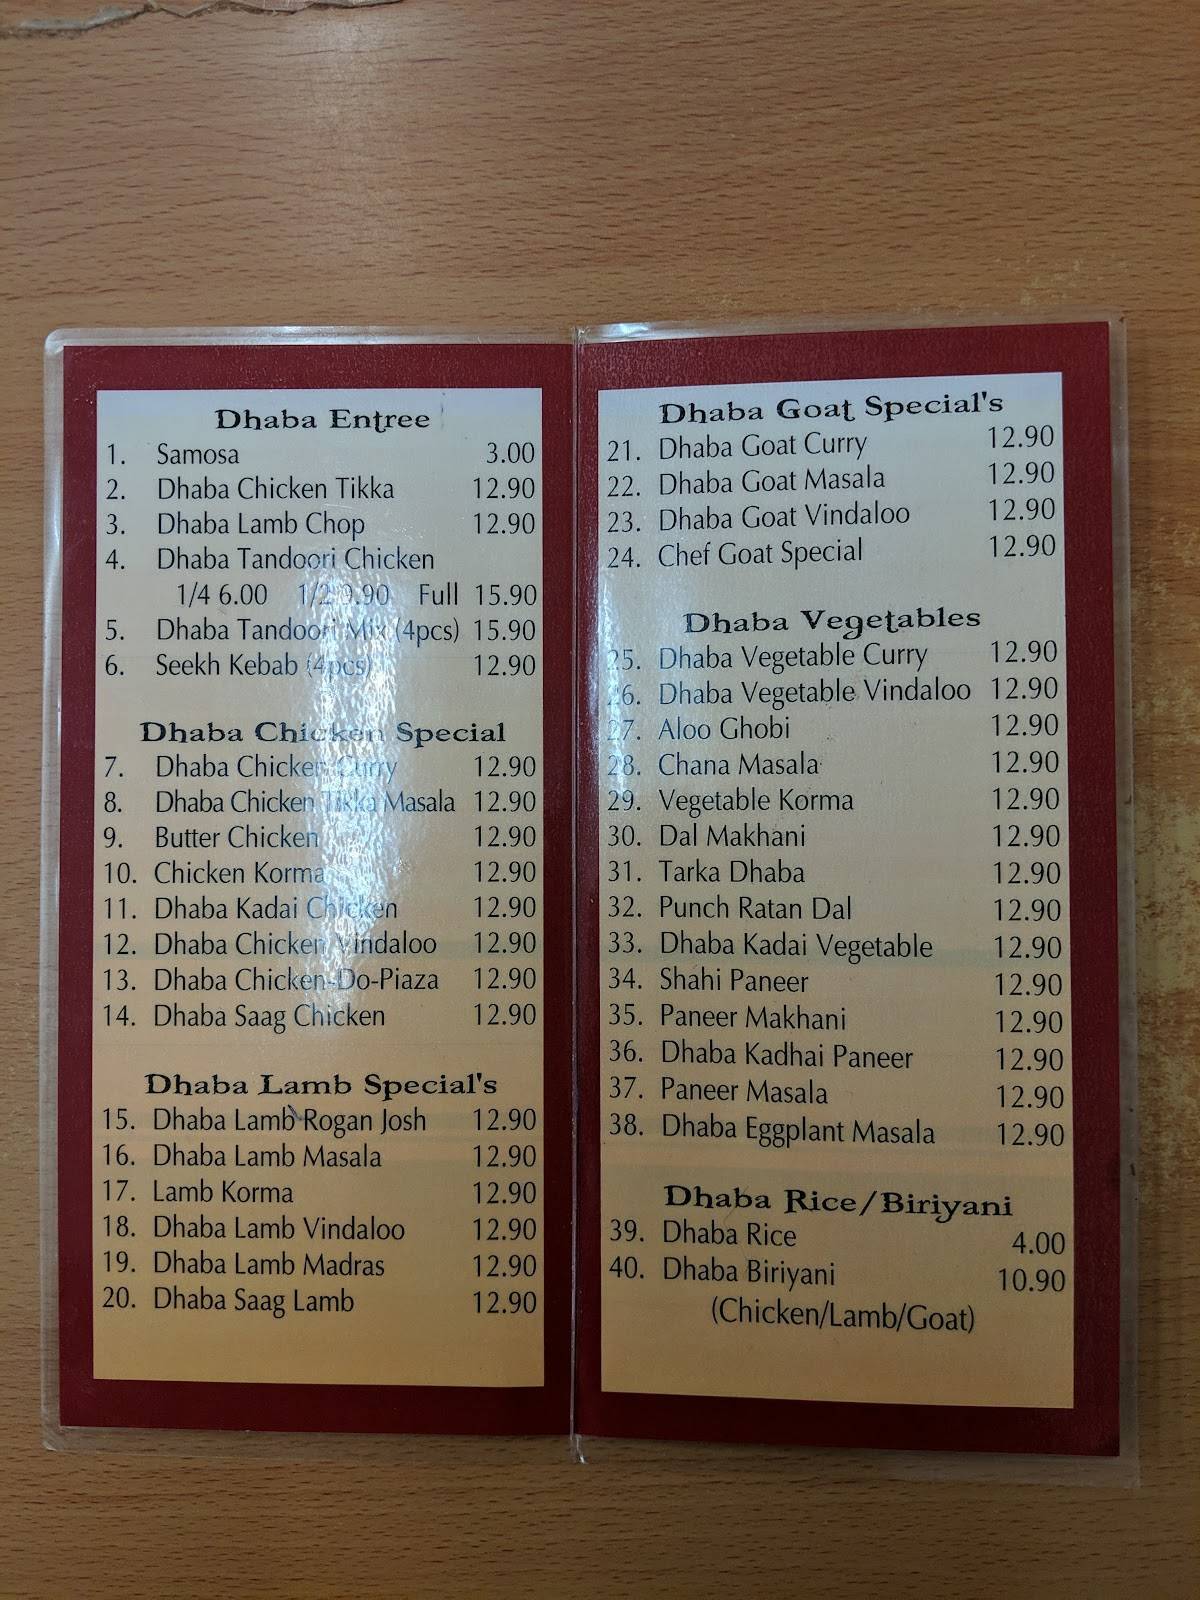 Dhaba Entree
1. Samosa 3.00
2. Dhaba Chicken Tikka 12.90
3. Dhaba Lamb Chop 12.90
4. Dhaba Tandoori Chicken
1/4 6.00 1/2 9.90 Full 15.90
5. Dhaba Tandoori Mix (4pcs) 15.90
6. Seekh Kebab (4pcs) 12.90
Dhaba Chicken Special
7. Dhaba Chicken Curry 12.90
8. Dhaba Chicken Tikka Masala 12.90
9. Butter Chicken 12.90
10. Chicken Korma 12.90
11. Dhaba Kadai Chicken 12.90
12. Dhaba Chicken Vindaloo 12.90
13. Dhaba Chicken-Do-Piaza 12.90
14. Dhaba Saag Chicken 12.90
Dhaba Lamb Special's
15. Dhaba Lamb Rogan Josh 12.90
16. Dhaba Lamb Masala 12.90
17. Lamb Korma 12.90
18. Dhaba Lamb Vindaloo 12.90
19. Dhaba Lamb Madras 12.90
20. Dhaba Saag Lamb 12.90
Dhaba Goat Special's
21. Dhaba Goat Curry 12.90
22. Dhaba Goat Masala 12.90
23. Dhaba Goat Vindaloo 12.90
24. Chef Goat Special 12.90
Dhaba Vegetables
25. Dhaba Vegetable Curry 12.90
26. Dhaba Vegetable Vindaloo 12.90
27. Aloo Ghobi 12.90
28. Chana Masala 12.90
29. Vegetable Korma 12.90
30. Dal Makhani 12.90
31. Tarka Dhaba 12.90
32. Punch Ratan Dal 12.90
33. Dhaba Kadai Vegetable 12.90
34. Shahi Paneer 12.90
35. Paneer Makhani 12.90
36. Dhaba Kadhai Paneer 12.90
37. Paneer Masala 12.90
38. Dhaba Eggplant Masala 12.90
Dhaba Rice/Biriyani
39. Dhaba Rice 4.00
40. Dhaba Biriyani 10.90
(Chicken/Lamb/Goat)